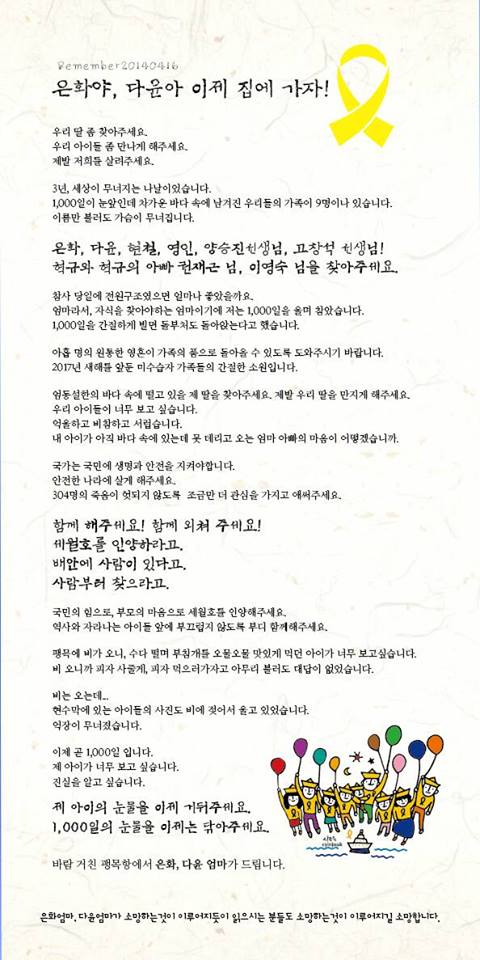 Remember20140416
은화야, 다윤아 이제 집에 가자!
우리 딸 좀 찾아주세요.
우리 아이들 좀 만나게 해주세요.
제발 저희를 살려주세요.
3년, 세상이 무너지는 나날이었습니다.
1,000일이 눈앞인데 차가운 바다 속에 남겨진 우리들의 가족이 9명이나 있습니다.
이름만 불러도 가슴이 무너집니다.
은화, 다윤, 현철, 영인, 양승진선생님, 고창석 선생님!
혁규와 혁규의 아빠 권재근 님, 이영숙 님을 찾아주세요.
참사 당일에 전원구조였으면 얼마나 좋았을까요.
엄마라서, 자식을 찾아야하는 엄마이기에 저는 1,000일을 울며 참았습니다.
1,000일을 간절하게 빌면 돌부처도 돌아앉는다고 했습니다.
아홉 명의 원통한 영혼이 가족의 품으로 돌아올 수 있도록 도와주시기 바랍니다.
2017년 새해를 앞둔 미수습자 가족들의 간절한 소원입니다.
엄동설한의 바다 속에 떨고 있을 제 딸을 찾아주세요. 제발 우리 딸을 만지게 해주세요.
우리 아이들이 너무 보고 싶습니다.
억울하고 비참하고 서럽습니다.
내 아이가 아직 바다 속에 있는데 못 데리고 오는 엄마 아빠의 마음이 어떻겠습니까.
국가는 국민에 생명과 안전을 지켜야합니다.
안전한 나라에 살게 해주세요.
304명의 죽음이 헛되지 않도록 조금만 더 관심을 가지고 애써주세요.
함께 해주세요! 함께 외쳐 주세요!
세월호를 인양하라고.
배안에 사람이 있다고.
사람부터 찾으라고.
국민의 힘으로, 부모의 마음으로 세월호를 인양해주세요.
역사와 자라나는 아이들 앞에 부끄럽지 않도록 부디 함께해주세요.
팽목에 비가 오니, 수다 떨며 부침개를 오물오물 맛있게 먹던 아이가 너무 보고싶습니다.
비 오니까 피자 사줄게, 피자 먹으러가자고 아무리 불러도 대답이 없었습니다.
비는 오는데...
현수막에 있는 아이들의 사진도 비에 젖어서 울고 있었습니다.
억장이 무너졌습니다.
이제 곧 1,000일 입니다.
제 아이가 너무 보고 싶습니다.
진실을 알고 싶습니다.
제 아이의 눈물을 이제 거둬주세요.
1,000일의 눈물을 이제는 닦아주세요.
바람 거친 팽목항에서 은화, 다윤 엄마가 드립니다.
은화엄마, 다윤엄마가 소망하는것이 이루어지듯이 읽으시는 분들도 소망하는것이 이루어지길 소망합니다.